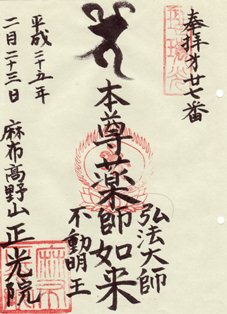 奉拝 才廿七番
弘法大師
本尊薬師如来
不動明王
平成二十五年
二月二十三日
麻布高野山 正光院